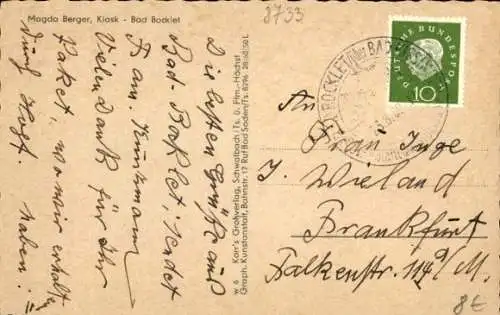 Magda Berger, Kiosk - Bad Bocklet
8733
Die besten Grüße aus
Bad-Bocklet sendet
Vielen Dank für Ihr
Paket, wo wir erhalten
haben!
w 6 Karr's Großverlag, Schwalbach/Ts. ü. Ffm.-Höchst
Graph. Kunstanstalt, Bahnstr. 17 Ruf Bad Soden/Ts. 8296
DEUTSCHE BUNDESPOST
10
BOCKLET BAD
An
Frau Inge
J. Wieland
Frankfurt
Falkenstr. 114a/M.
8€